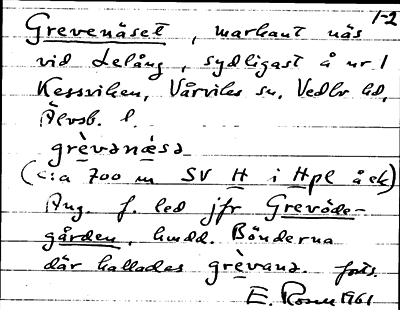 1-2
Grevenäset, markant näs
vid Lelång, sydligast å nr 1
Kessviken, Vårviks sn, Vedbo hd,
Älvsb. l.
grèvənæsə
(c:a 700 m SV H i Hpl å ek)
Ang. f. led jfr Grevöde-
gården, hmdd. Bönderna
där kallades grèvanə. forts.
E. Rosen 1961